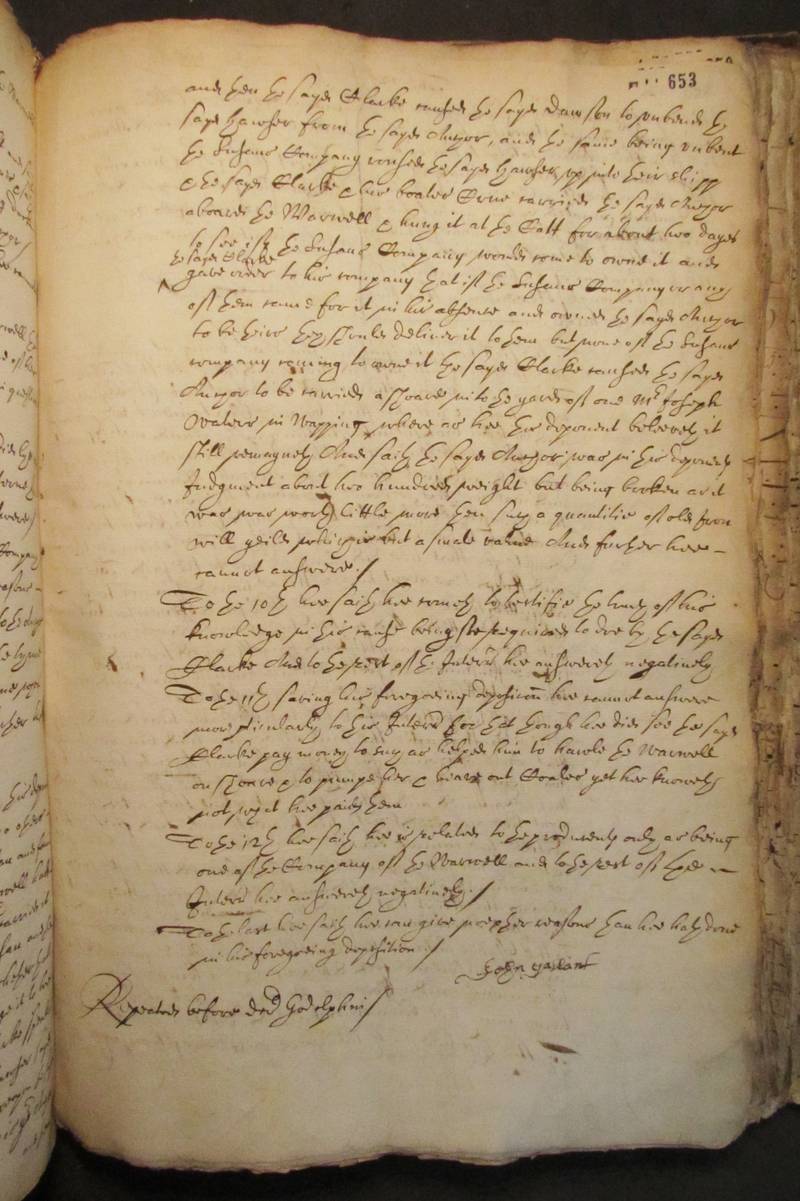 653
and then the sayd Clarke caused the sayd Dawson to unbend the
sayd hawser from the sayd Anchor, and the same being unbent
the Susans Company tooke the sayd hawser up into their shipp
& the sayd Clarke & his boates Crue carried the sayd Anchor
aboard the Marwell & hung it at the Catt for about two dayes
to see if the Susans Company would come to owne it and
the sayd Clarke
gave order to his company that if the Susans Company or any
of them came for it in his absence and owned the sayd Anchor
to be theirs they should deliver it to them but none of the Susans
company coming to owne it the sayd Clarke caused the sayd
Anchor to be carried ashoare into the yard of one Mr Joseph
Waters in Wapping where as hee this deponent beleeveth it
still remayneth And saith the sayd Anchor was in his deponents
Judgment about two hundred weight but being broken as it
was was worth little more then such a quantitie of old Iron
will yeild which is but a small value And further hee
cannot answere./
To the 10th hee saith hee cometh to testifie the truth of his
knowledge in this cause being required to doe by the sayd
Clarke And to the rest of the Interrie hee answereth negatively
To the 11th saving his foregoeing deposition hee cannot answere
more particularly to this Interrie for that though hee did see the sayd
Clarke pay money to such as helped him to hawle the Marwell
on shoare & to pumpe her & heave out Coales yet hee knoweth
not what hee payd them
To the 12th hee saith hee is related to the producents only as being
one of the Company of the Marwell and to the rest of the
Interrie hee answereth negatively./
To the last hee saith hee can give noe other reasons than hee hath done
in his foregoeing deposition./
John gallant
Repeated before Dr Godolphin/